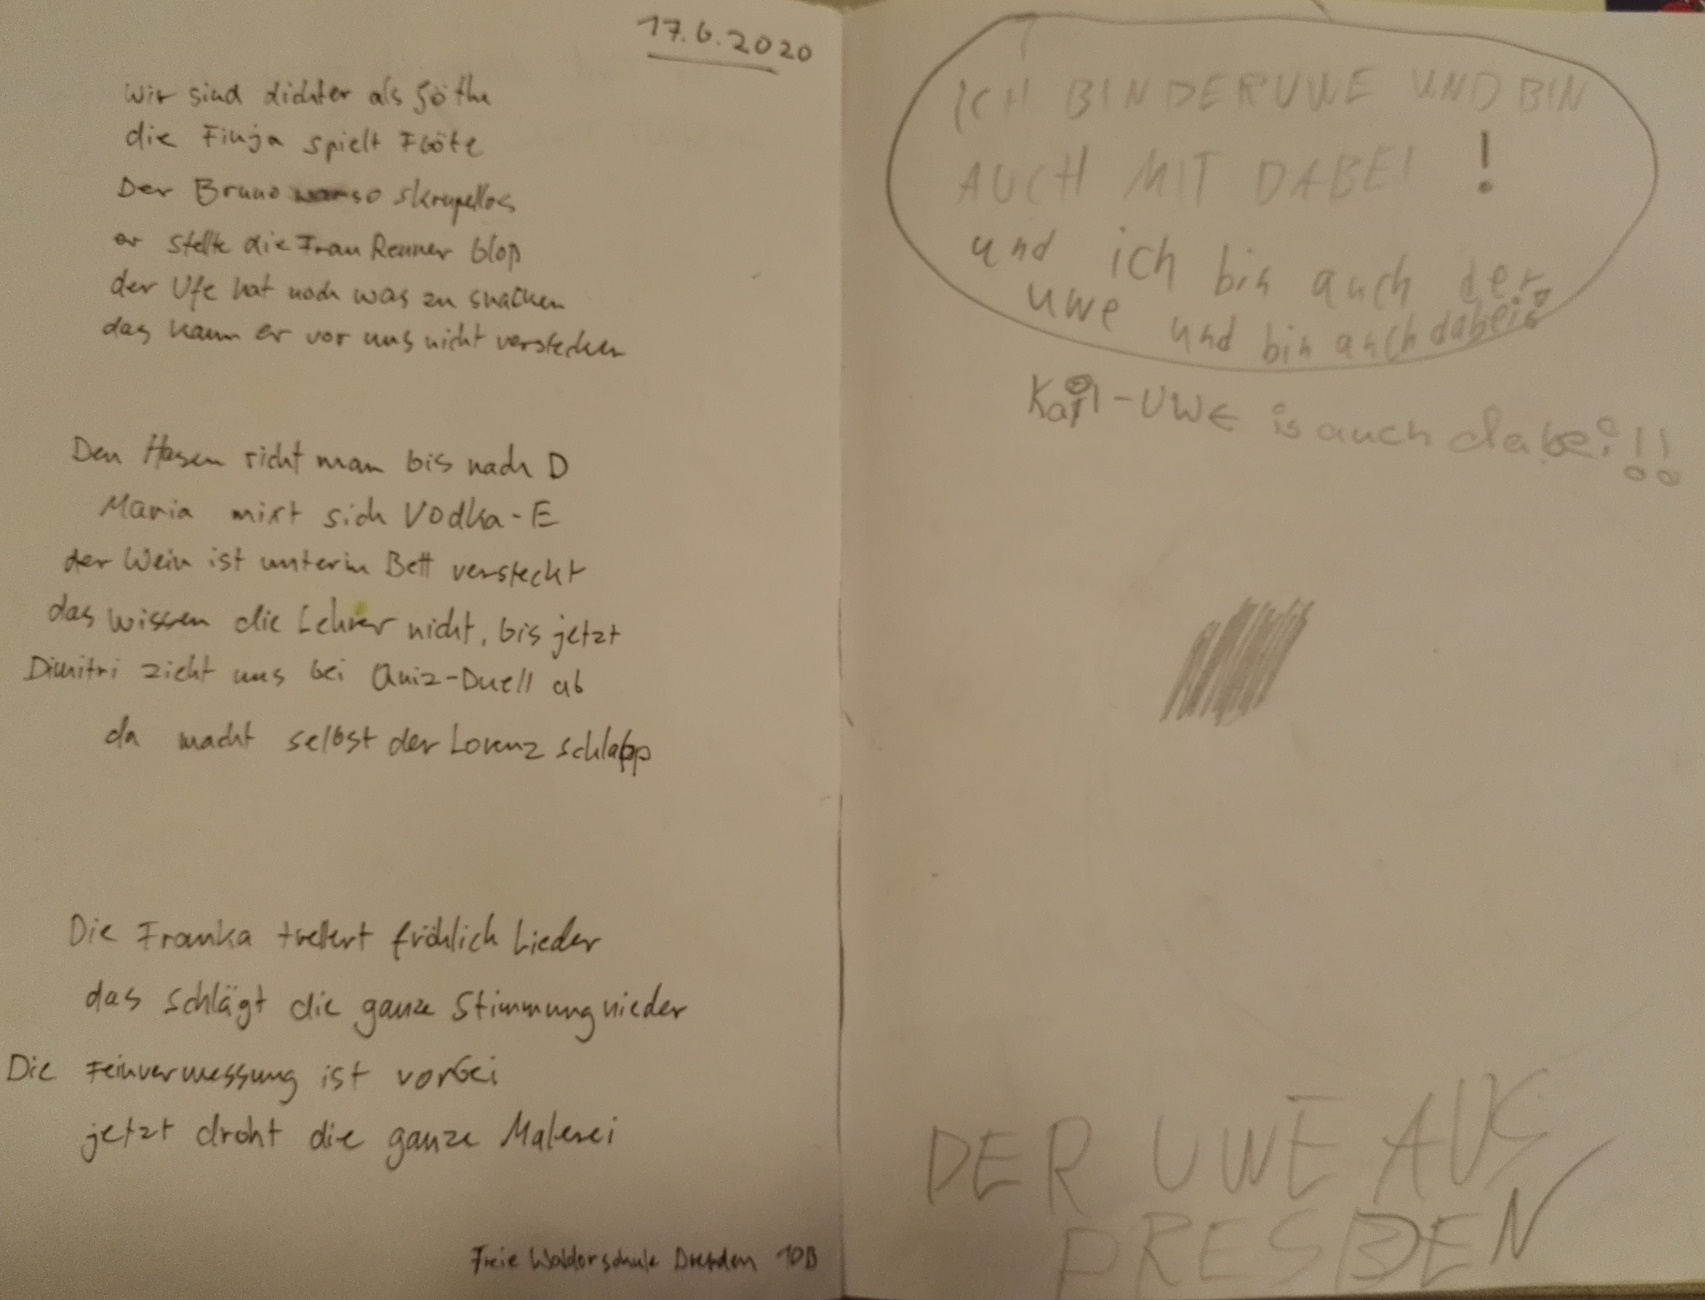 17.6.2020
Wir sind dichter als Göthe
die Finja spielt Flöte
Der Bruno war so skrupellos
er stellte die Frau Renner bloß
der Ufe hat noch was zu snacken
das kann er vor uns nicht verstecken
Den Hasen richt man bis nach D
Maria mixt sich Vodka-E
der Wein ist unterm Bett versteckt
das wissen die Lehrer nicht, bis jetzt
Dimitri zieht uns bei Quiz-Duell ab
da macht selbst der Lorenz schlapp
Die Franka trellert fröhlich Lieder
das schlägt die ganze Stimmung nieder
Die Feinvermessung ist vorbei
jetzt droht die ganze Malerei
Freie Waldorschule Dresden 10B
ICH BIN DER UWE UND BIN
AUCH MIT DABEI !
und ich bin auch der
uwe und bin auch dabei
Karl-UWE is auch dabei!!
DER UWE AUS
DRESDEN